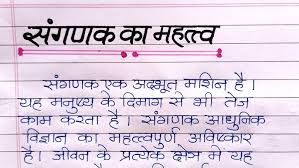 संगणक का महत्त्व
संगणक एक अद्भूत मशिन है।
यह मनुष्य के दिमाग से भी तेज
काम करता है। संगणक आधुनिक
विज्ञान का महत्त्वपुर्ण अविष्कार
है। जीवन के प्रत्येक क्षेत्र में यह